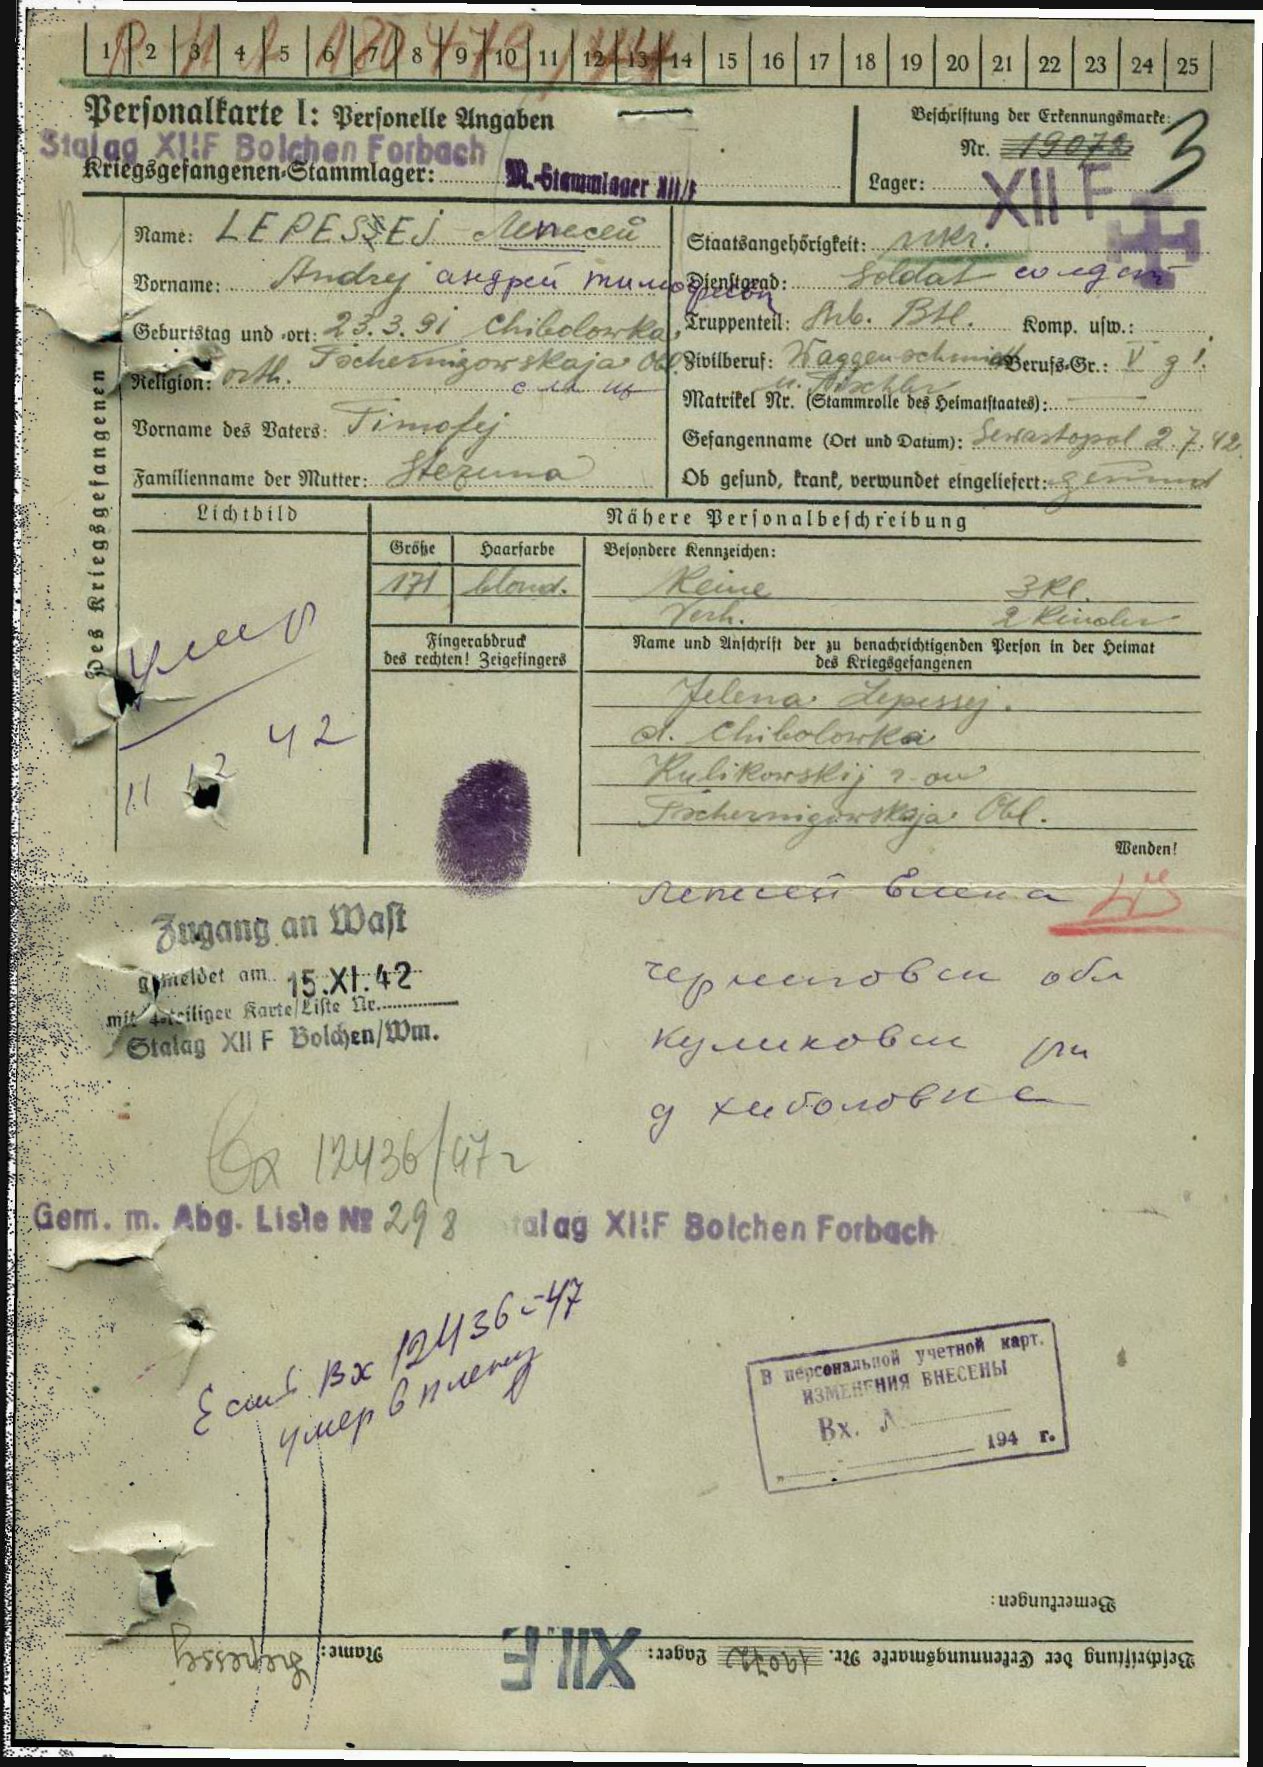 1 2 3 4 5 6 7 8 9 10 11 12 13 14 15 16 17 18 19 20 21 22 23 24 25
Personalkarte I: Personelle Angaben
Beschriftung der Erkennungsmarke:
Stalag XIIF Bolchen Forbach
Nr. 19072
3
Kriegsgefangenen-Stammlager: M.-Stammlager XII/F
Lager: XII F
Des Kriegsgefangenen
Name: LEPESSEJ Лепесей
Staatsangehörigkeit: ukr.
Vorname: Andrej андрей
Dienstgrad: Soldat солдат
Geburtstag und -ort: 23.3.91 Chibolowka
Truppenteil: Arb. Btl. Komp. usw.:
Tschernigowskaja Obl.
Zivilberuf: Berufs-Gr.: V g 1.
Religion: orth.
u. Tischler
Matrikel Nr. (Stammrolle des Heimatstaates): —
Vorname des Vaters: Timofej
Gefangenname (Ort und Datum): Sewastopol 2.7.42
Familienname der Mutter:
Ob gesund, krank, verwundet eingeliefert: gesund
Lichtbild
Nähere Personalbeschreibung
Größe Haarfarbe Besondere Kennzeichen:
171 blond. Keine 3 Kl.
Verh. 2 Kinder
Fingerabdruck
des rechten! Zeigefingers
Name und Anschrift der zu benachrichtigenden Person in der Heimat
des Kriegsgefangenen
умер
11 12 42
Jelena Lepessej.
d. Chibolowka
Kulikowskij r-on
Tschernigowskaja Obl.
Wenden!
лепесей Елена
Zugang an Wast
gemeldet am 15.XI.42
mit 4-teiliger Karte/Liste Nr.
Stalag XII F Bolchen/Wm.
черниговск обл
куликовск рн
д хиболовка
12436/47г
Gem. m. Abg. Liste № 298 Stalag XIIF Bolchen Forbach
Есть Вх 12436-47
умер в плену
В персональной учетной карт.
ИЗМЕНЕНИЯ ВНЕСЕНЫ
Вх. №
194 г.
Bemerkungen:
Beschriftung der Erkennungsmarke Nr. 19072 Lager: XII F Name: Lepessej